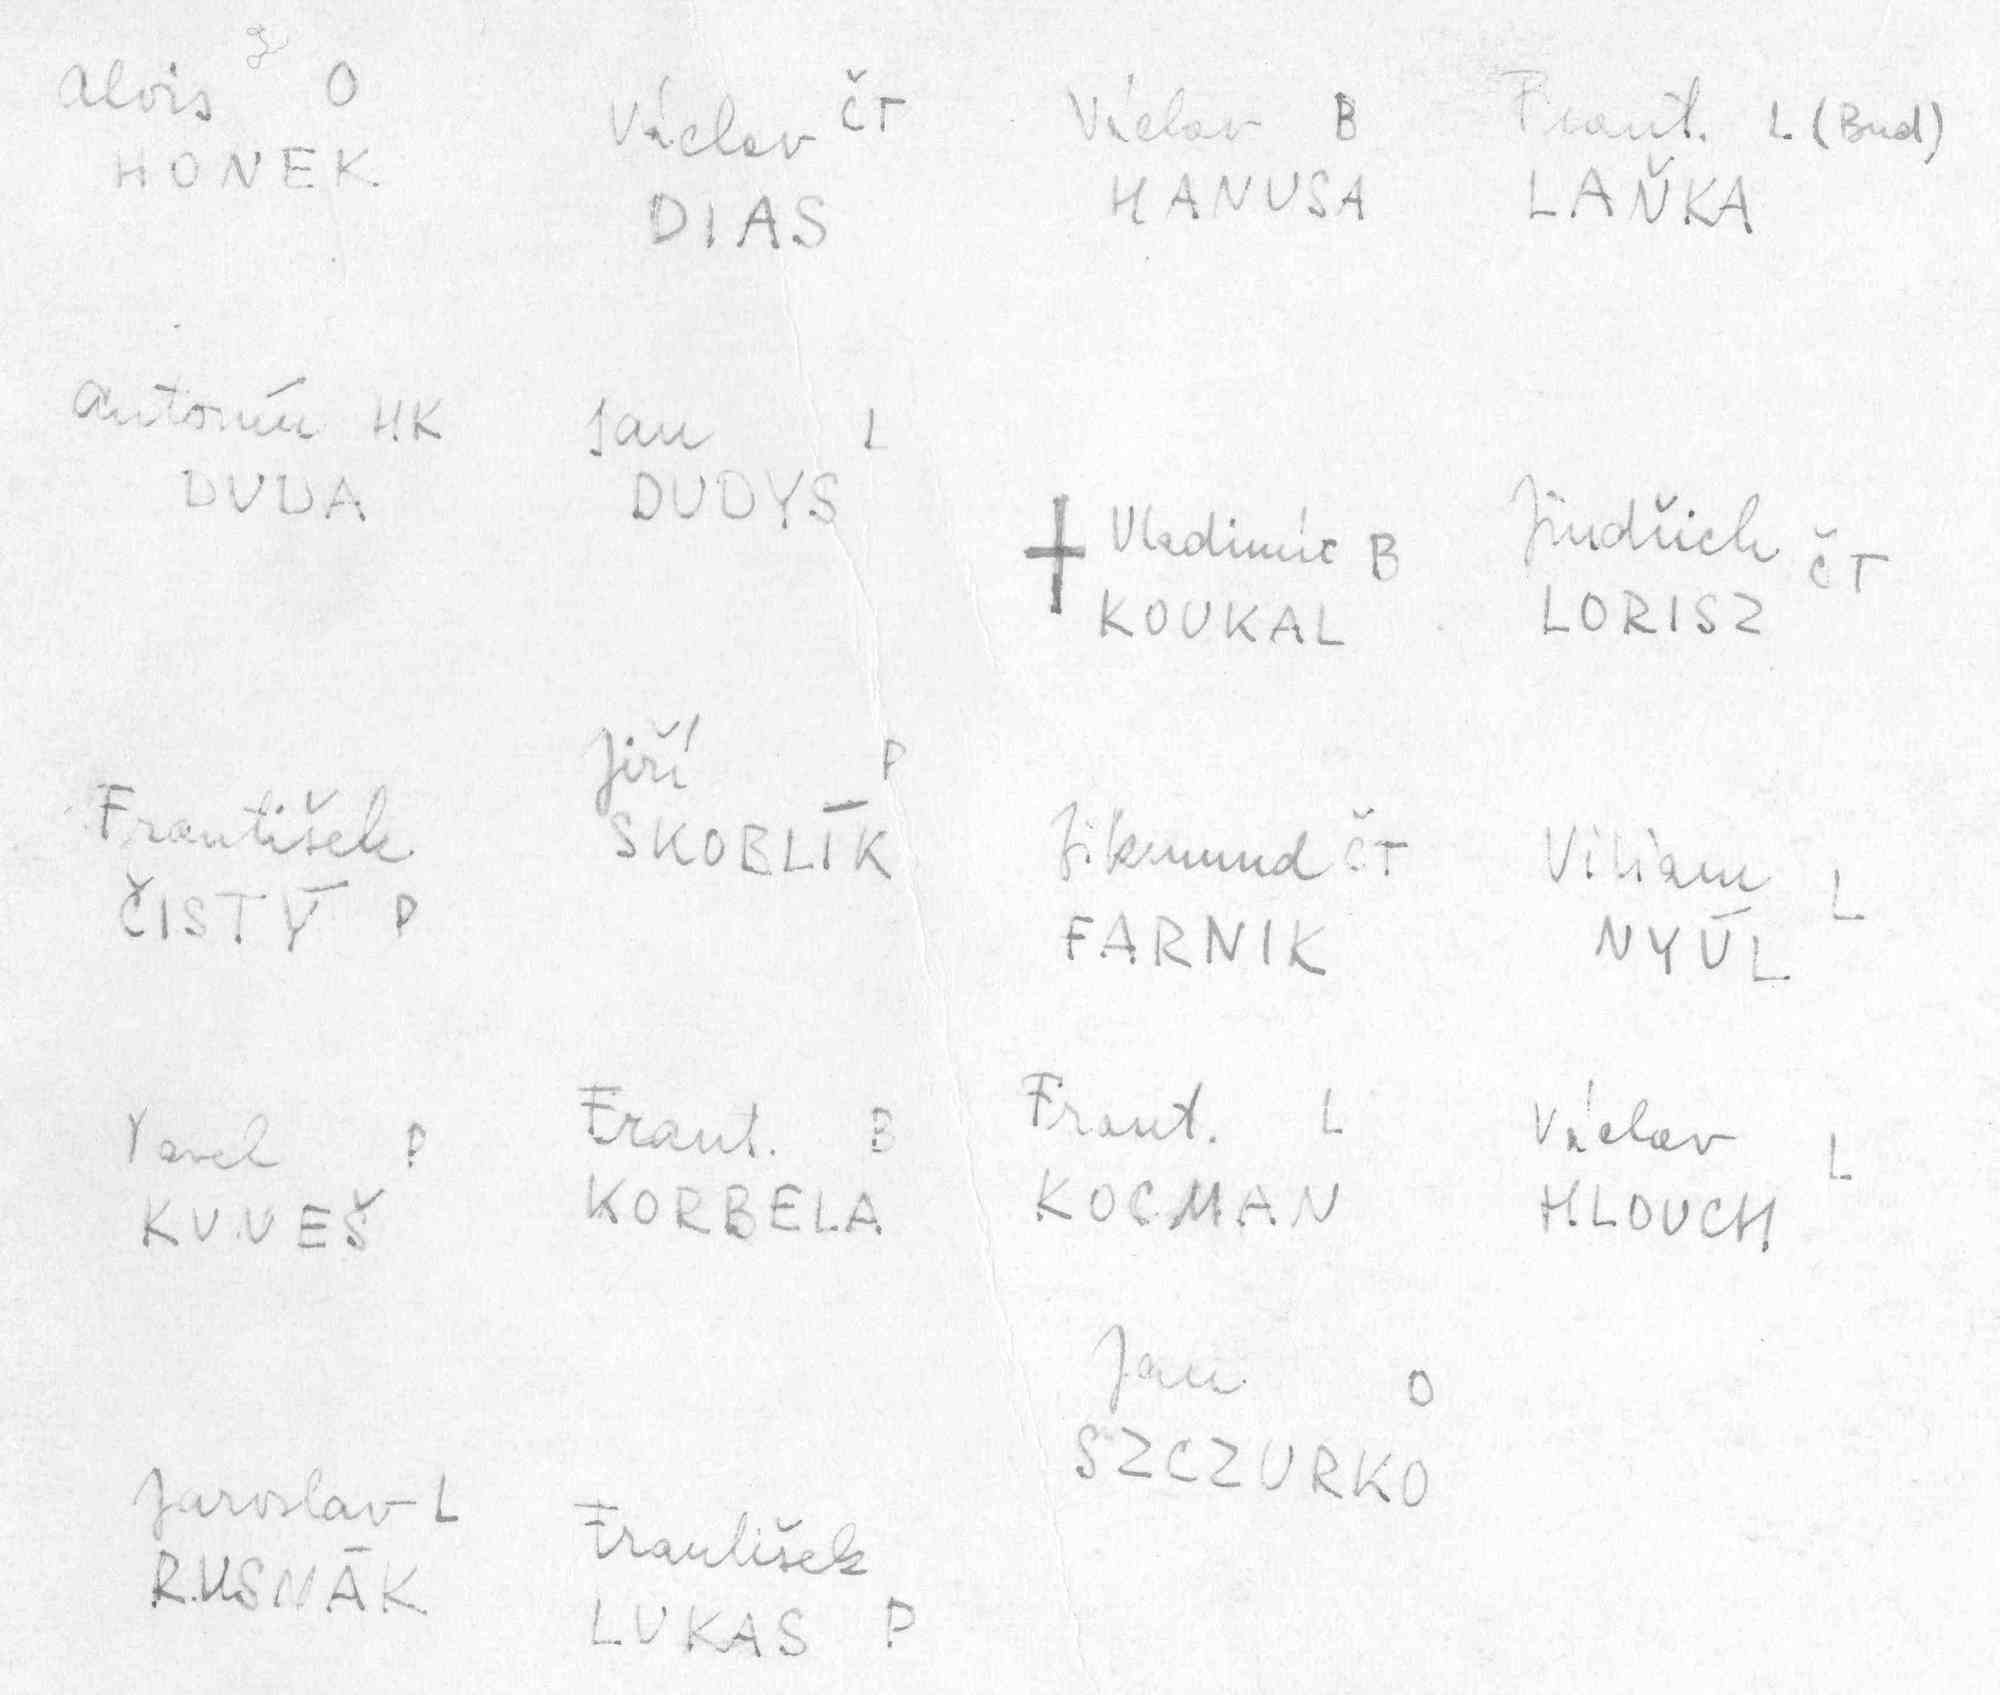 Alois O
HONEK
Václav ČT
DIAS
Václav B
HANUSA
Frant. L (Bud)
LAŇKA
Antonín HK
DUDA
Jan L
DUDYS
Vladimír B
KOUKAL
Jindřich ČT
LORISZ
František
ČISTÝ P
Jiří P
SKOBLÍK
Zikmund ČT
FARNIK
Viliam L
NYÚL
Pavel P
KUNEŠ
Frant. B
KORBELA
Frant. L
KOCMAN
Václav L
HLOUCH
Jan O
SZCZURKO
Jaroslav L
RUSNÁK
František
LUKAS P